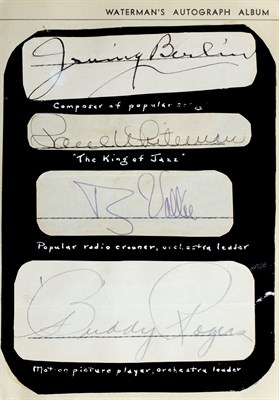 WATERMAN'S AUTOGRAPH ALBUM
Irving Berlin
Composer of popular song
Paul Whiteman
"The King of Jazz"
R Vallee
Popular radio crooner, orchestra leader
Buddy Rogers
Motion picture player, orchestra leader